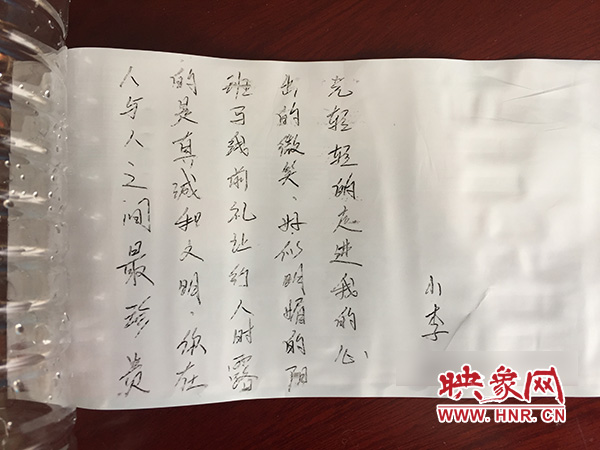 人与人之间最珍贵
的是真诚和文明、你在
班马线前礼让行人时露
出的微笑、好似明媚的阳
光轻轻的走进我的心
小李
映象网
WWW.HNR.CN